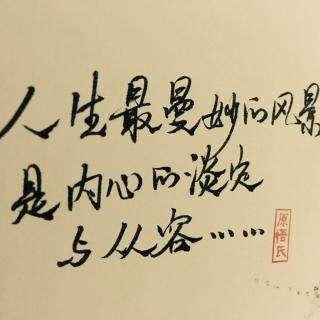 人生最曼妙的风景
是内心的淡定
与从容……
原悟氏